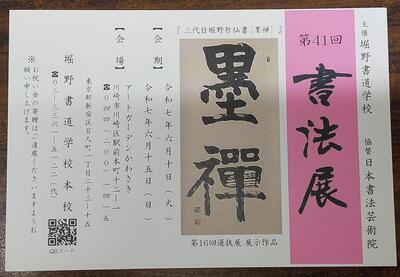 主催 堀野書道学校
協賛 日本書法芸術院
第41回
書法展
『三代目堀野哲仙書［墨禅］』
墨禪
第16回選抜展 展示作品
【会 期】
令和七年六月十日（火）
令和七年六月十五日（日）
【会 場】
アートガーデンかわさき
川崎市川崎区駅前本町十二ー一
☎〇四四（二〇〇）一四一五
東京都新宿区百人町一丁目二十三ー十五
堀野書道学校本校
☎〇三ー三三六一ー五一三二（代）
※お祝い金の寄贈はご遠慮くださいますようお
願い申し上げます。
QRコード